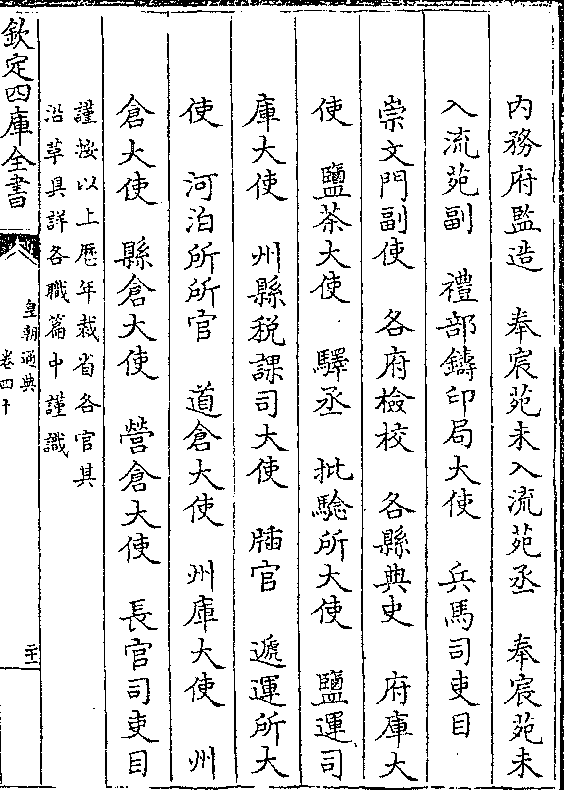 內務府監造　奉宸苑未入流苑丞　奉宸苑未
入流苑副　禮部鑄印局大使　兵馬司吏目
崇文門副使　各府檢校　各縣典史　府庫大
使　鹽茶大使　驛丞　批驗所大使　鹽運司
庫大使　州縣税課司大使　牐官　遞運所大
使　河泊所所官　道倉大使　州庫大使　州
倉大使　縣倉大使　營倉大使　長官司吏目
謹按以上歴年裁省各官其
沿革具詳各職篇中謹識
欽定四庫全書
皇朝通典
卷四十